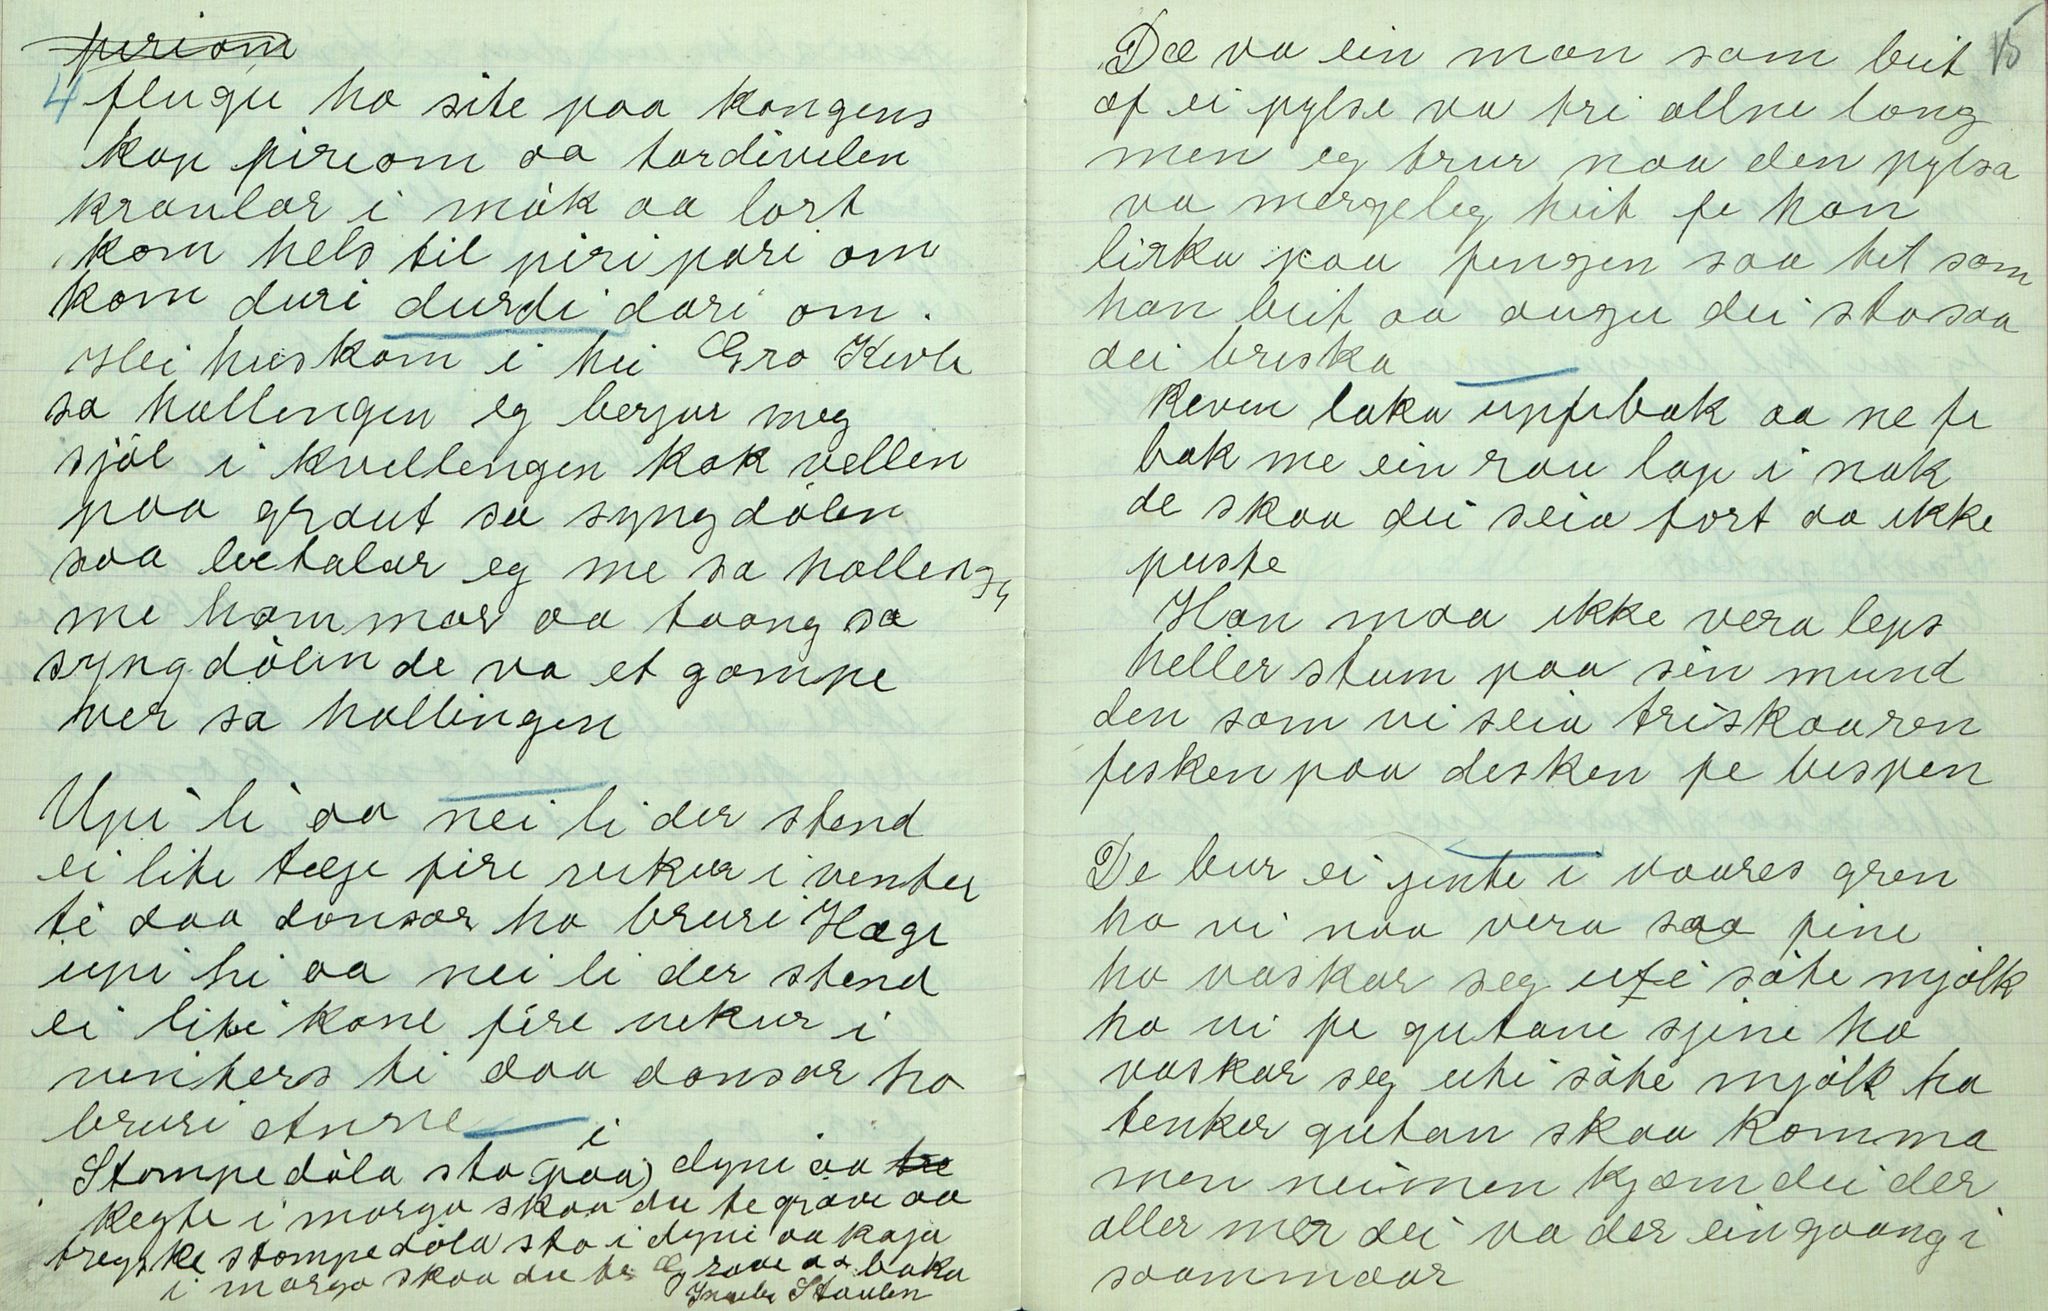 piriom
4 flugu ho site paa kongens
kop piriom aa tordivelen
kravlar i mók aa lort
kom hels til piri pari om
kom duri durdi dari om.
Hei huskom i hei Gro Kivle
sa hallingen eg berjar meg
sjól i kvellengen kok vellen
paa graut sa syngdólen
saa betalar eg me sa halleng
me hammar aa taang sa
syngdólen de va et gampe
ver sa hallingen
Upi li aa nei li der stend
ei lite tæge fire vekur i venter
te daa donsar ho bruri Hæge
upi li aa nei li der stend
ei liti kone fire vekur i
venters te daa donsar ho
bruri Anne
i
Stompedóla sta (paa) dyni aa tre
kegte i morgo skaa du te grave aa
treyske stompedóla sta i dyni aa kaja
i morgo skaa du te Grave aa baka
Staulen
15
Dæ va ein man som beit
af ei pylse va tri allne long
men eg trur naa den pylsa
va mergeleg heit fe han
lirka paa fengen saa hit som
han beit aa augu dei sto saa
dei briska
Reven laka upfebak aa ne fe
bak me ein rau lap i nak
de skaa dei seia fort aa ikke
puste
Han maa ikke vera leps
heller stum paa sin mund
den som vi seia triskaaren
fesken paa desken fe bespen
De bur ei jente i vaares gren
ho vi naa vera saa fine
ho vaskar seg uti sóte mjólk
ho vi fe gutane sjine ho
vaskar seg uti sóte mjólk ho
tenker gutan skaa komma
men neimen kjæm dei der
aller mer dei va der ein gaang i
saammaar